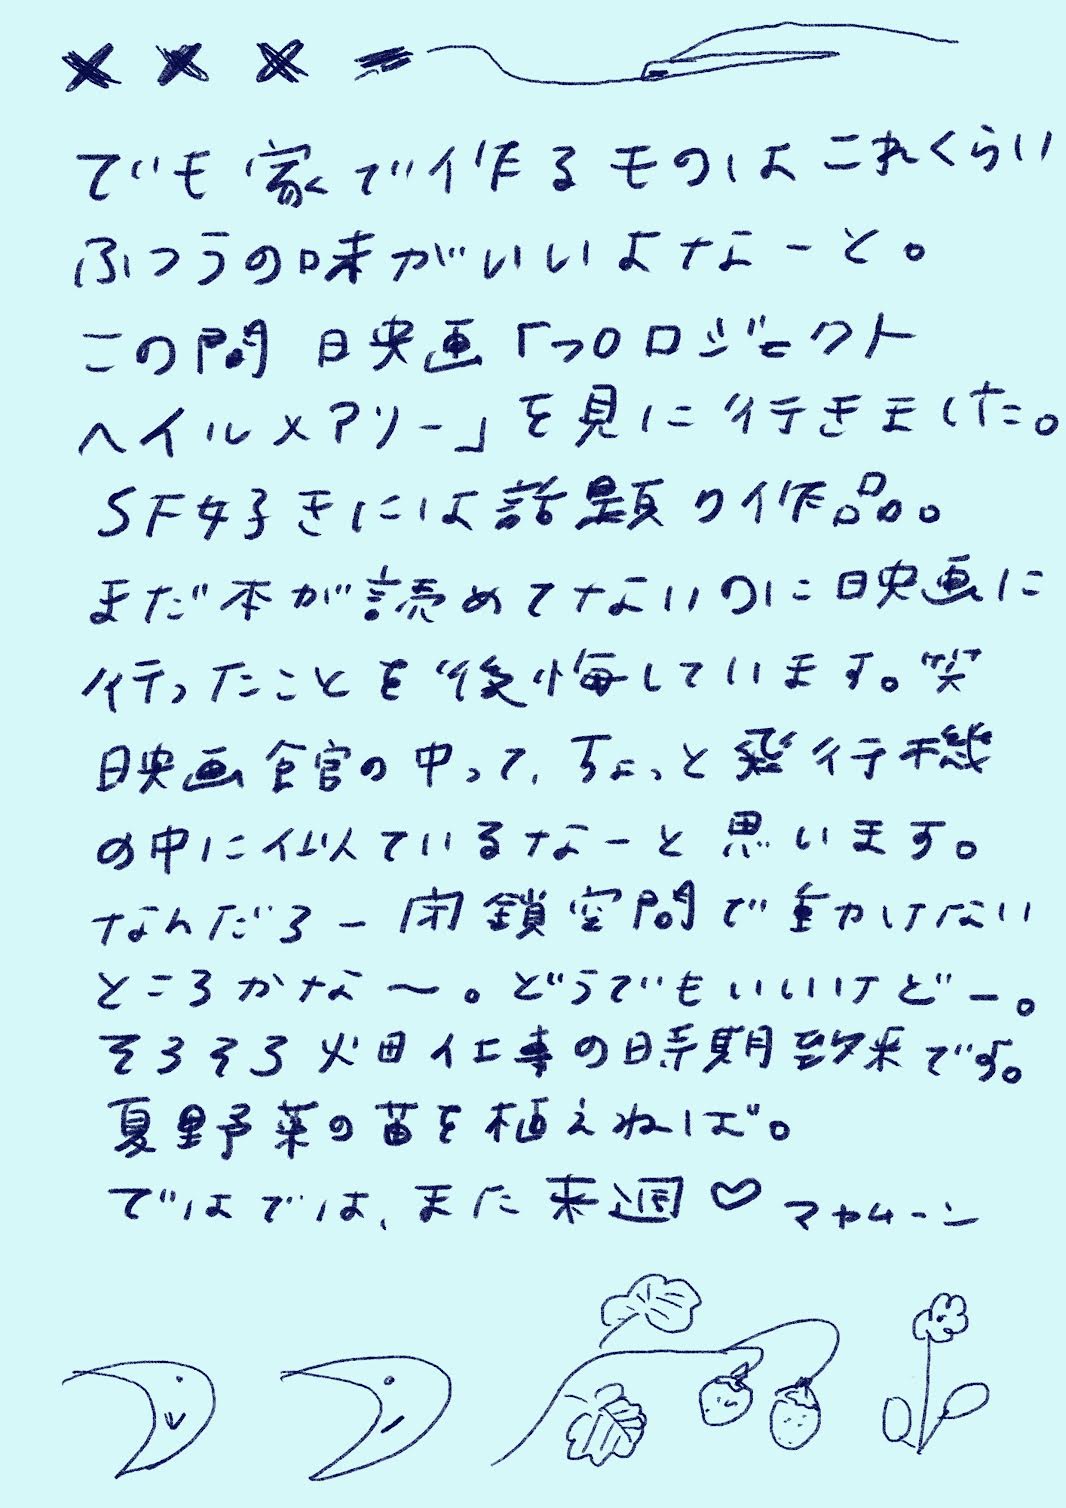 でも家で作るものはこれくらい
ふつうの味がいいよなーと。
この間 映画「プロジェクト
ヘイルメアリー」を見に行きました。
SF好きには話題の作品。
まだ本が読めてないのに映画に
行ったことを後悔しています。笑
映画館の中って、ちょっと飛行機
の中に似ているなーと思います。
なんだろー閉鎖空間で動かけない
ところかな〜。どうでもいいけどー。
そろそろ畑仕事の時期到来です。
夏野菜の苗を植えねば。
ではでは、また来週♡ マヤムーン